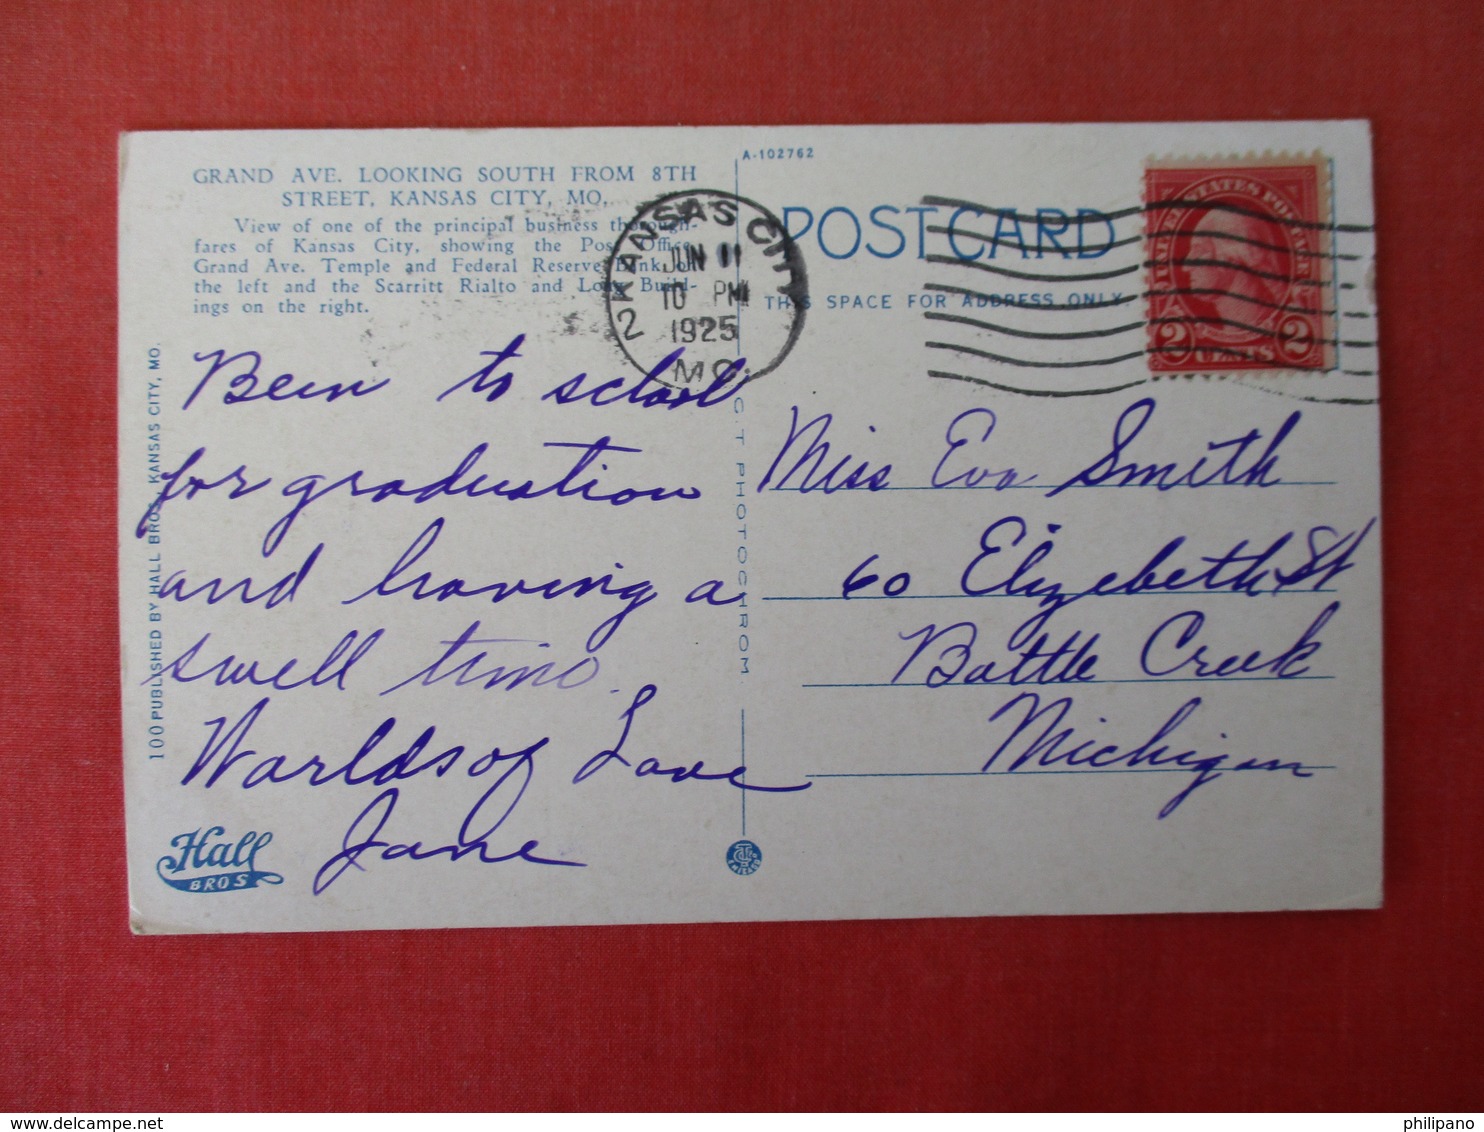 GRAND AVE. LOOKING SOUTH FROM 8TH
STREET, KANSAS CITY, MO.
View of one of the principal business thorough-
fares of Kansas City, showing the Post Office,
Grand Ave. Temple and Federal Reserve Bank on
the left and the Scarritt Rialto and Long Build-
ings on the right.
Been to school
for graduation
and having a
swell time.
Worlds of Love
Jane
100 PUBLISHED BY HALL BROS., KANSAS CITY, MO.
Hall
BROS
A-102762
POST CARD
THIS SPACE FOR ADDRESS ONLY
C.T. PHOTOCHROM
KANSAS CITY
2
JUN 11
10 PM
1925
MO.
UNITED STATES POSTAGE
2 CENTS 2
Miss Eva Smith
60 Elizabeth St
Battle Creek
Michigan
philipano